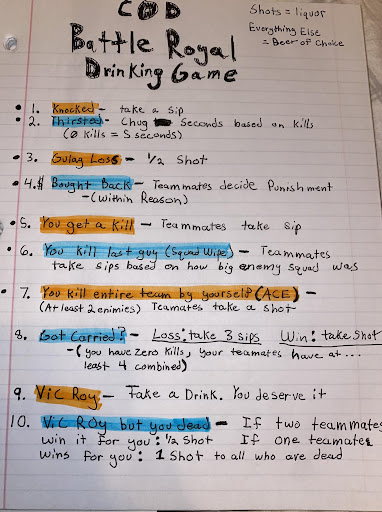 COD
Shots = liquor
Battle Royal
Everything Else
= Beer of Choice
Drinking Game
1. Knocked - take a sip
2. Thirsted - Chug Seconds based on kills
(0 kills = 5 seconds)
3. Gulag Loss - 1/2 Shot
4.$ Bought Back - Teammates decide Punishment
- (Within Reason)
5. You get a kill - Teammates take sip
6. You kill last guy (Squad Wipe) - Teammates
take sips based on how big enemy squad was
7. You kill entire team by yourself (ACE) -
(At least 2 enimies) Teamates take a shot
8. Got Carried? - Loss: take 3 sips Win: take Shot
- (you have zero kills, your teamates have at...
least 4 combined)
9. Vic Roy - Take a Drink. You deserve it
10. Vic Roy but you dead - If two teammates
win it for you: 1/2 Shot If one teamate
wins for you: 1 Shot to all who are dead